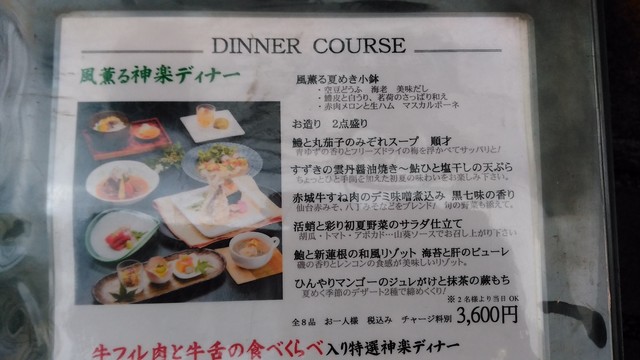 DINNER COURSE
風薫る神楽ディナー
風薫る夏めき小鉢
・空豆どうふ 海老 美味だし
・鱧皮と白うり、茗荷のさっぱり和え
・赤肉メロンと生ハム マスカルポーネ
お造り 2点盛り
鱧と丸茄子のみぞれスープ 順才
青ゆずの香りとフリーズドライの梅を浮かべてサッパリと!
すずきの雲丹醤油焼き〜鮎ひと塩干しの天ぷら
ちょっとひと手間を加えた初夏の味わいをお楽しみ下さい。
赤城牛すね肉のデミ味噌煮込み 黒七味の香り
仙台赤みそ、八丁みそなどをブレンド♪ 旬の夏菜も添えて。
活蛸と彩り初夏野菜のサラダ仕立て
胡瓜・トマト・アボカド…山葵ソースでお召し上がり下さい
鮑と新蓮根の和風リゾット 海苔と肝のピューレ
磯の香りとレンコンの食感が美味しいリゾット。
ひんやりマンゴーのジュレがけと抹茶の蕨もち
夏めく季節のデザート2種で締めくくり!
※2名様より当日OK
全8品 お一人様 税込み チャージ料別 3,600円
牛フィレ肉と牛舌の食べくらべ入り特選神楽ディナー